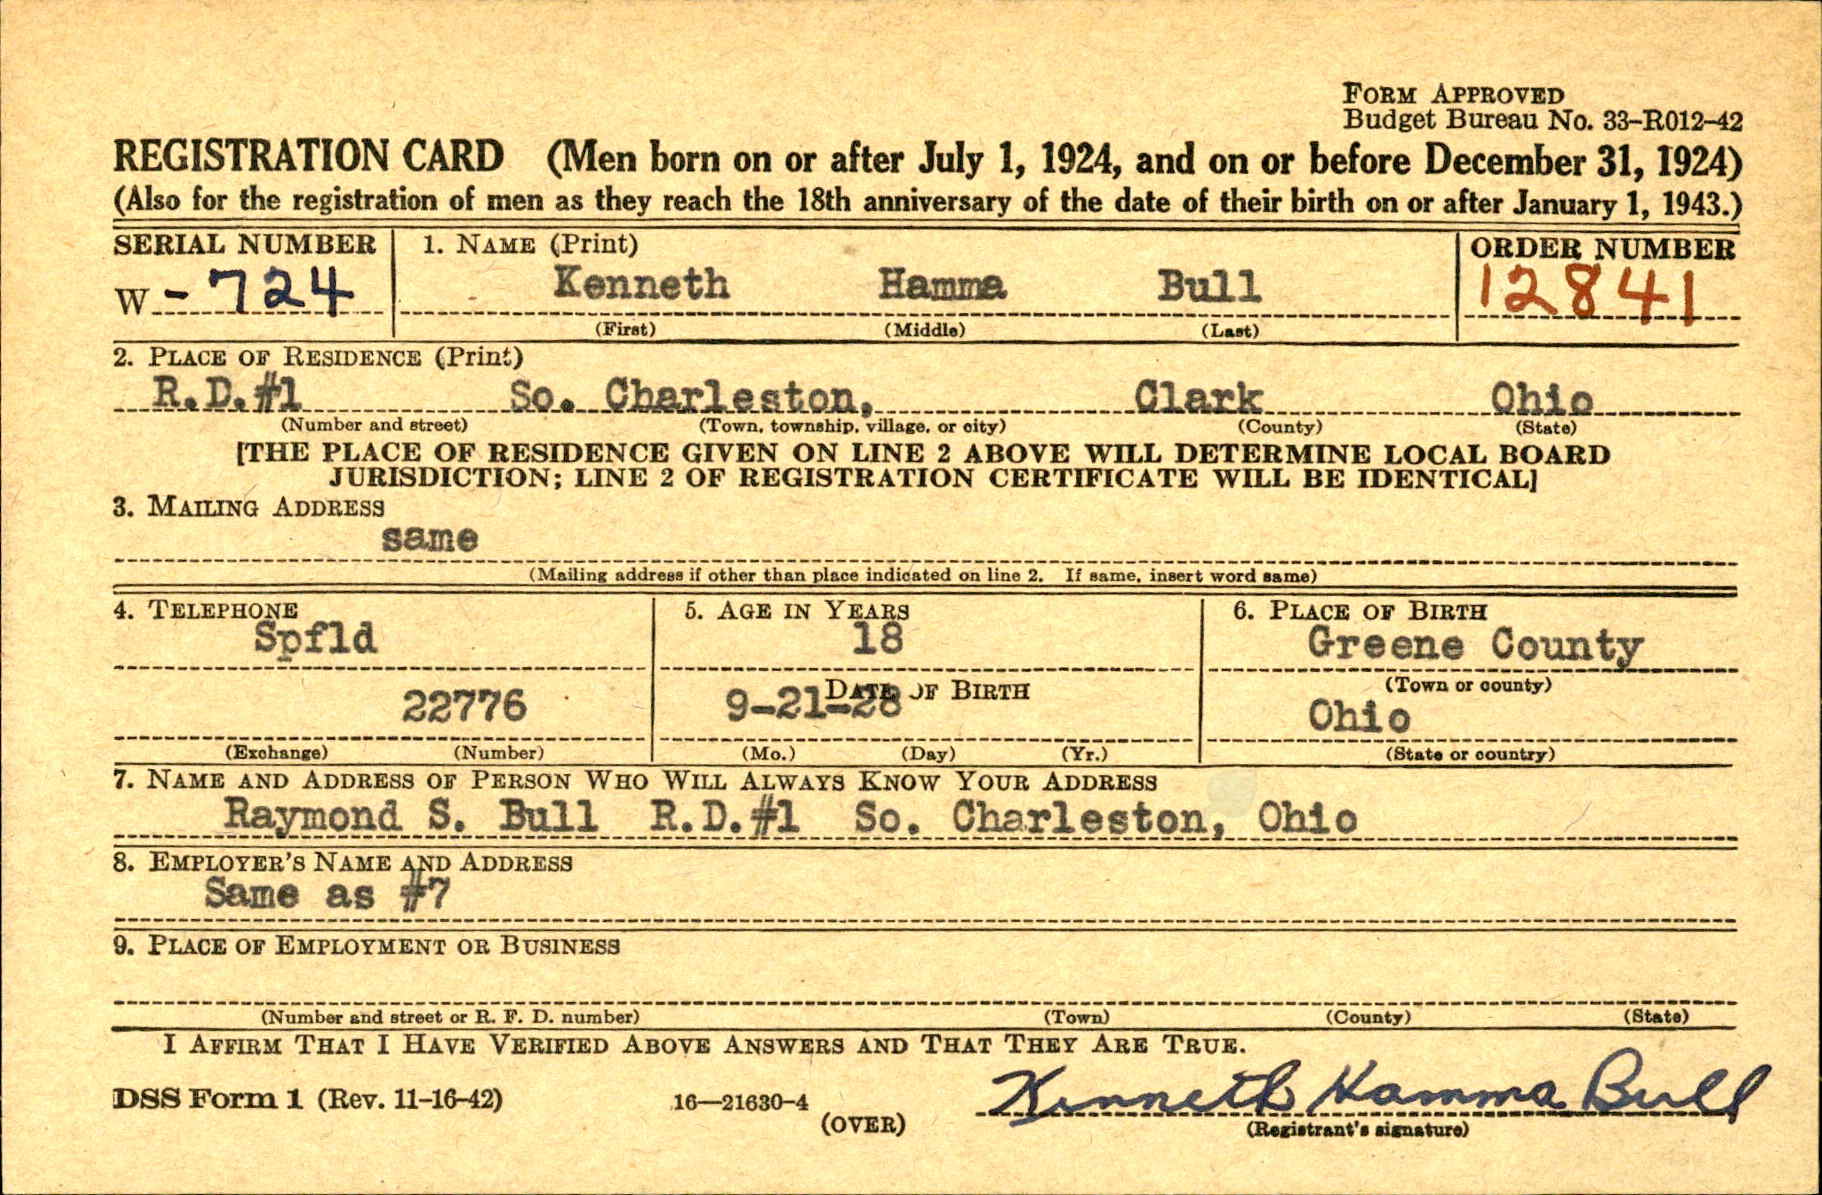 FORM APPROVED
Budget Bureau No. 33-R012-42
REGISTRATION CARD (Men born on or after July 1, 1924, and on or before December 31, 1924)
(Also for the registration of men as they reach the 18th anniversary of the date of their birth on or after January 1, 1943.)
SERIAL NUMBER 1. NAME (Print) ORDER NUMBER
W -724 Kenneth Hamma Bull 12841
(First) (Middle) (Last)
2. PLACE OF RESIDENCE (Print)
R.D.#1 So. Charleston, Clark Ohio
(Number and street) (Town, township, village, or city) (County) (State)
[THE PLACE OF RESIDENCE GIVEN ON LINE 2 ABOVE WILL DETERMINE LOCAL BOARD
JURISDICTION; LINE 2 OF REGISTRATION CERTIFICATE WILL BE IDENTICAL]
3. MAILING ADDRESS
same
(Mailing address if other than place indicated on line 2. If same, insert word same)
4. TELEPHONE 5. AGE IN YEARS 6. PLACE OF BIRTH
Spfld 18 Greene County
DATE OF BIRTH (Town or county)
22776 9-21-28 Ohio
(Exchange) (Number) (Mo.) (Day) (Yr.) (State or country)
7. NAME AND ADDRESS OF PERSON WHO WILL ALWAYS KNOW YOUR ADDRESS
Raymond S. Bull R.D.#1 So. Charleston, Ohio
8. EMPLOYER'S NAME AND ADDRESS
Same as #7
9. PLACE OF EMPLOYMENT OR BUSINESS
(Number and street or R. F. D. number) (Town) (County) (State)
I AFFIRM THAT I HAVE VERIFIED ABOVE ANSWERS AND THAT THEY ARE TRUE.
DSS Form 1 (Rev. 11-16-42) 16—21630-4 (OVER) Kenneth Hamma Bull
(Registrant's signature)